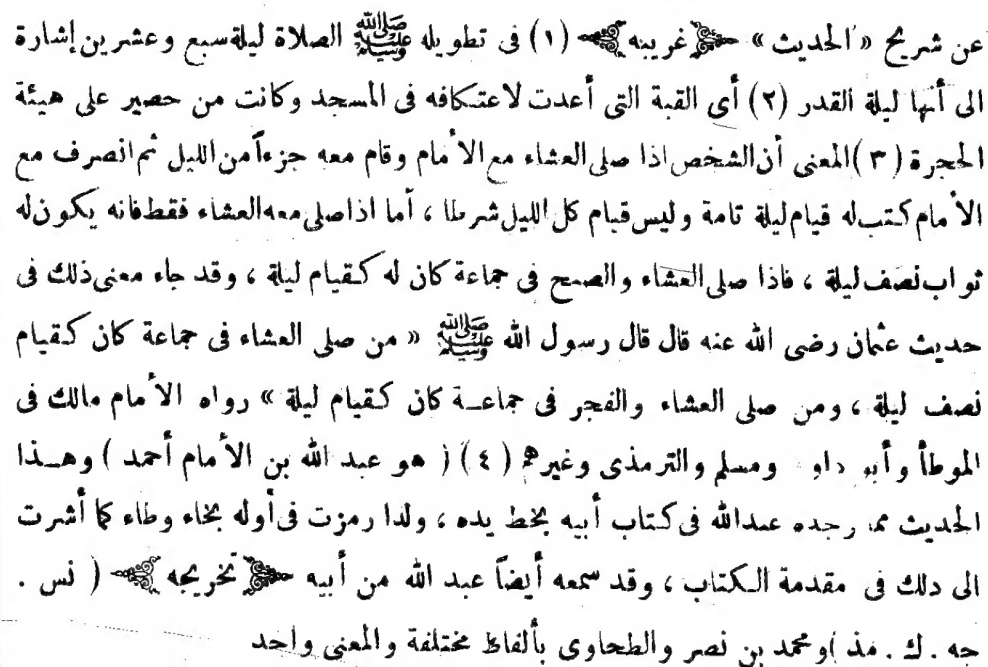 عن شريح «الحديث» ﴿غريبه﴾ (١) فى تطويله ﷺ الصلاة ليلة سبع وعشرين إشارة
الى أنها ليلة القدر (٢) أى القبة التى أعدت لاعتكافه فى المسجد وكانت من حصير على هيئة
الحجرة (٣) المعنى أن الشخص اذا صلى العشاء مع الأمام وقام معه جزءاً من الليل ثم انصرف مع
الأمام كتب له قيام ليلة تامة وليس قيام كل الليل شرطا ، أما اذا صلى معه العشاء فقط فانه يكون له
ثواب نصف ليلة ، فاذا صلى العشاء والصبح فى جماعة كان له كقيام ليلة ، وقد جاء معنى ذلك فى
حديث عثمان رضى الله عنه قال قال رسول الله ﷺ « من صلى العشاء فى جماعة كان كقيام
نصف ليلة ، ومن صلى العشاء والفجر فى جماعة كان كقيام ليلة » رواه الأمام مالك فى
الموطأ وأبو داو ومسلم والترمذى وغيرهم (٤) ( هو عبد الله بن الأمام أحمد ) وهذا
الحديث مما وجده عبدالله فى كتاب أبيه بخط يده ، ولذا رمزت فى أوله بخاء وطاء كما أشرت
الى دلك فى مقدمة الكتاب ، وقد سمعه أيضاً عبد الله من أبيه ﴿تخريجه﴾ ( نس .
جه . ك . مذ ) ومحمد بن نصر والطحاوى بألفاظ مختلفة والمعنى واحد